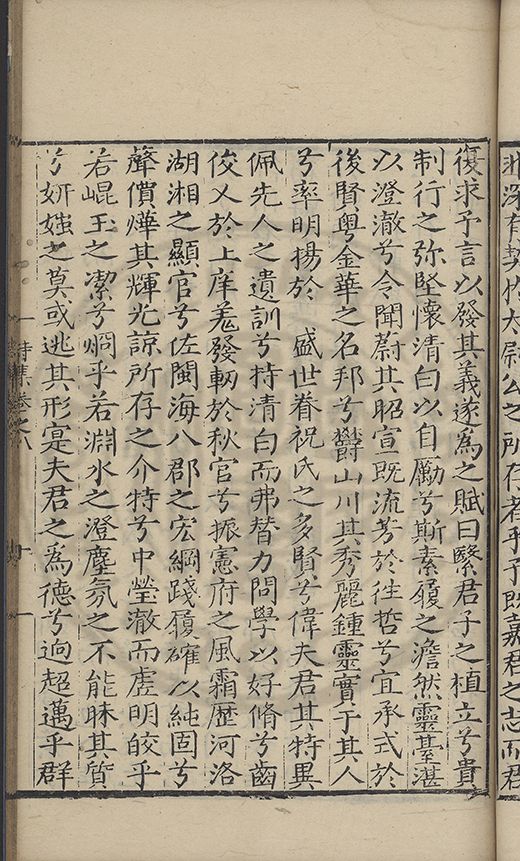 非深有契於太尉公之所存者乎予既嘉君之志而君
復求予言以發其義遂為之賦曰繄君子之植立兮貴
制行之弥堅懷清白以自勵兮斯素履之澹然靈臺湛
以澄澈兮令聞蔚其昭宣既流芳於往哲兮宜承式於
後賢粤金華之名邦兮欝山川其秀麗鍾靈實于其人
兮率明揚於 盛世眷祝氏之多賢兮偉夫君其特異
佩先人之遺訓兮持清白而弗替力問學以好脩兮齒
俊乂於上庠羌發軔於秋官兮振憲府之風霜歷河洛
湖湘之顯官兮佐閩海八郡之宏綱踐履確以純固兮
聲價燁其輝光諒所存之介特兮中瑩澈而虛明皎乎
若崐玉之潔兮烱乎若淵水之澄塵氛之不能昧其質
兮妍媸之莫或逃其形寔夫君之為德兮逈超邁乎群
詩集卷之八